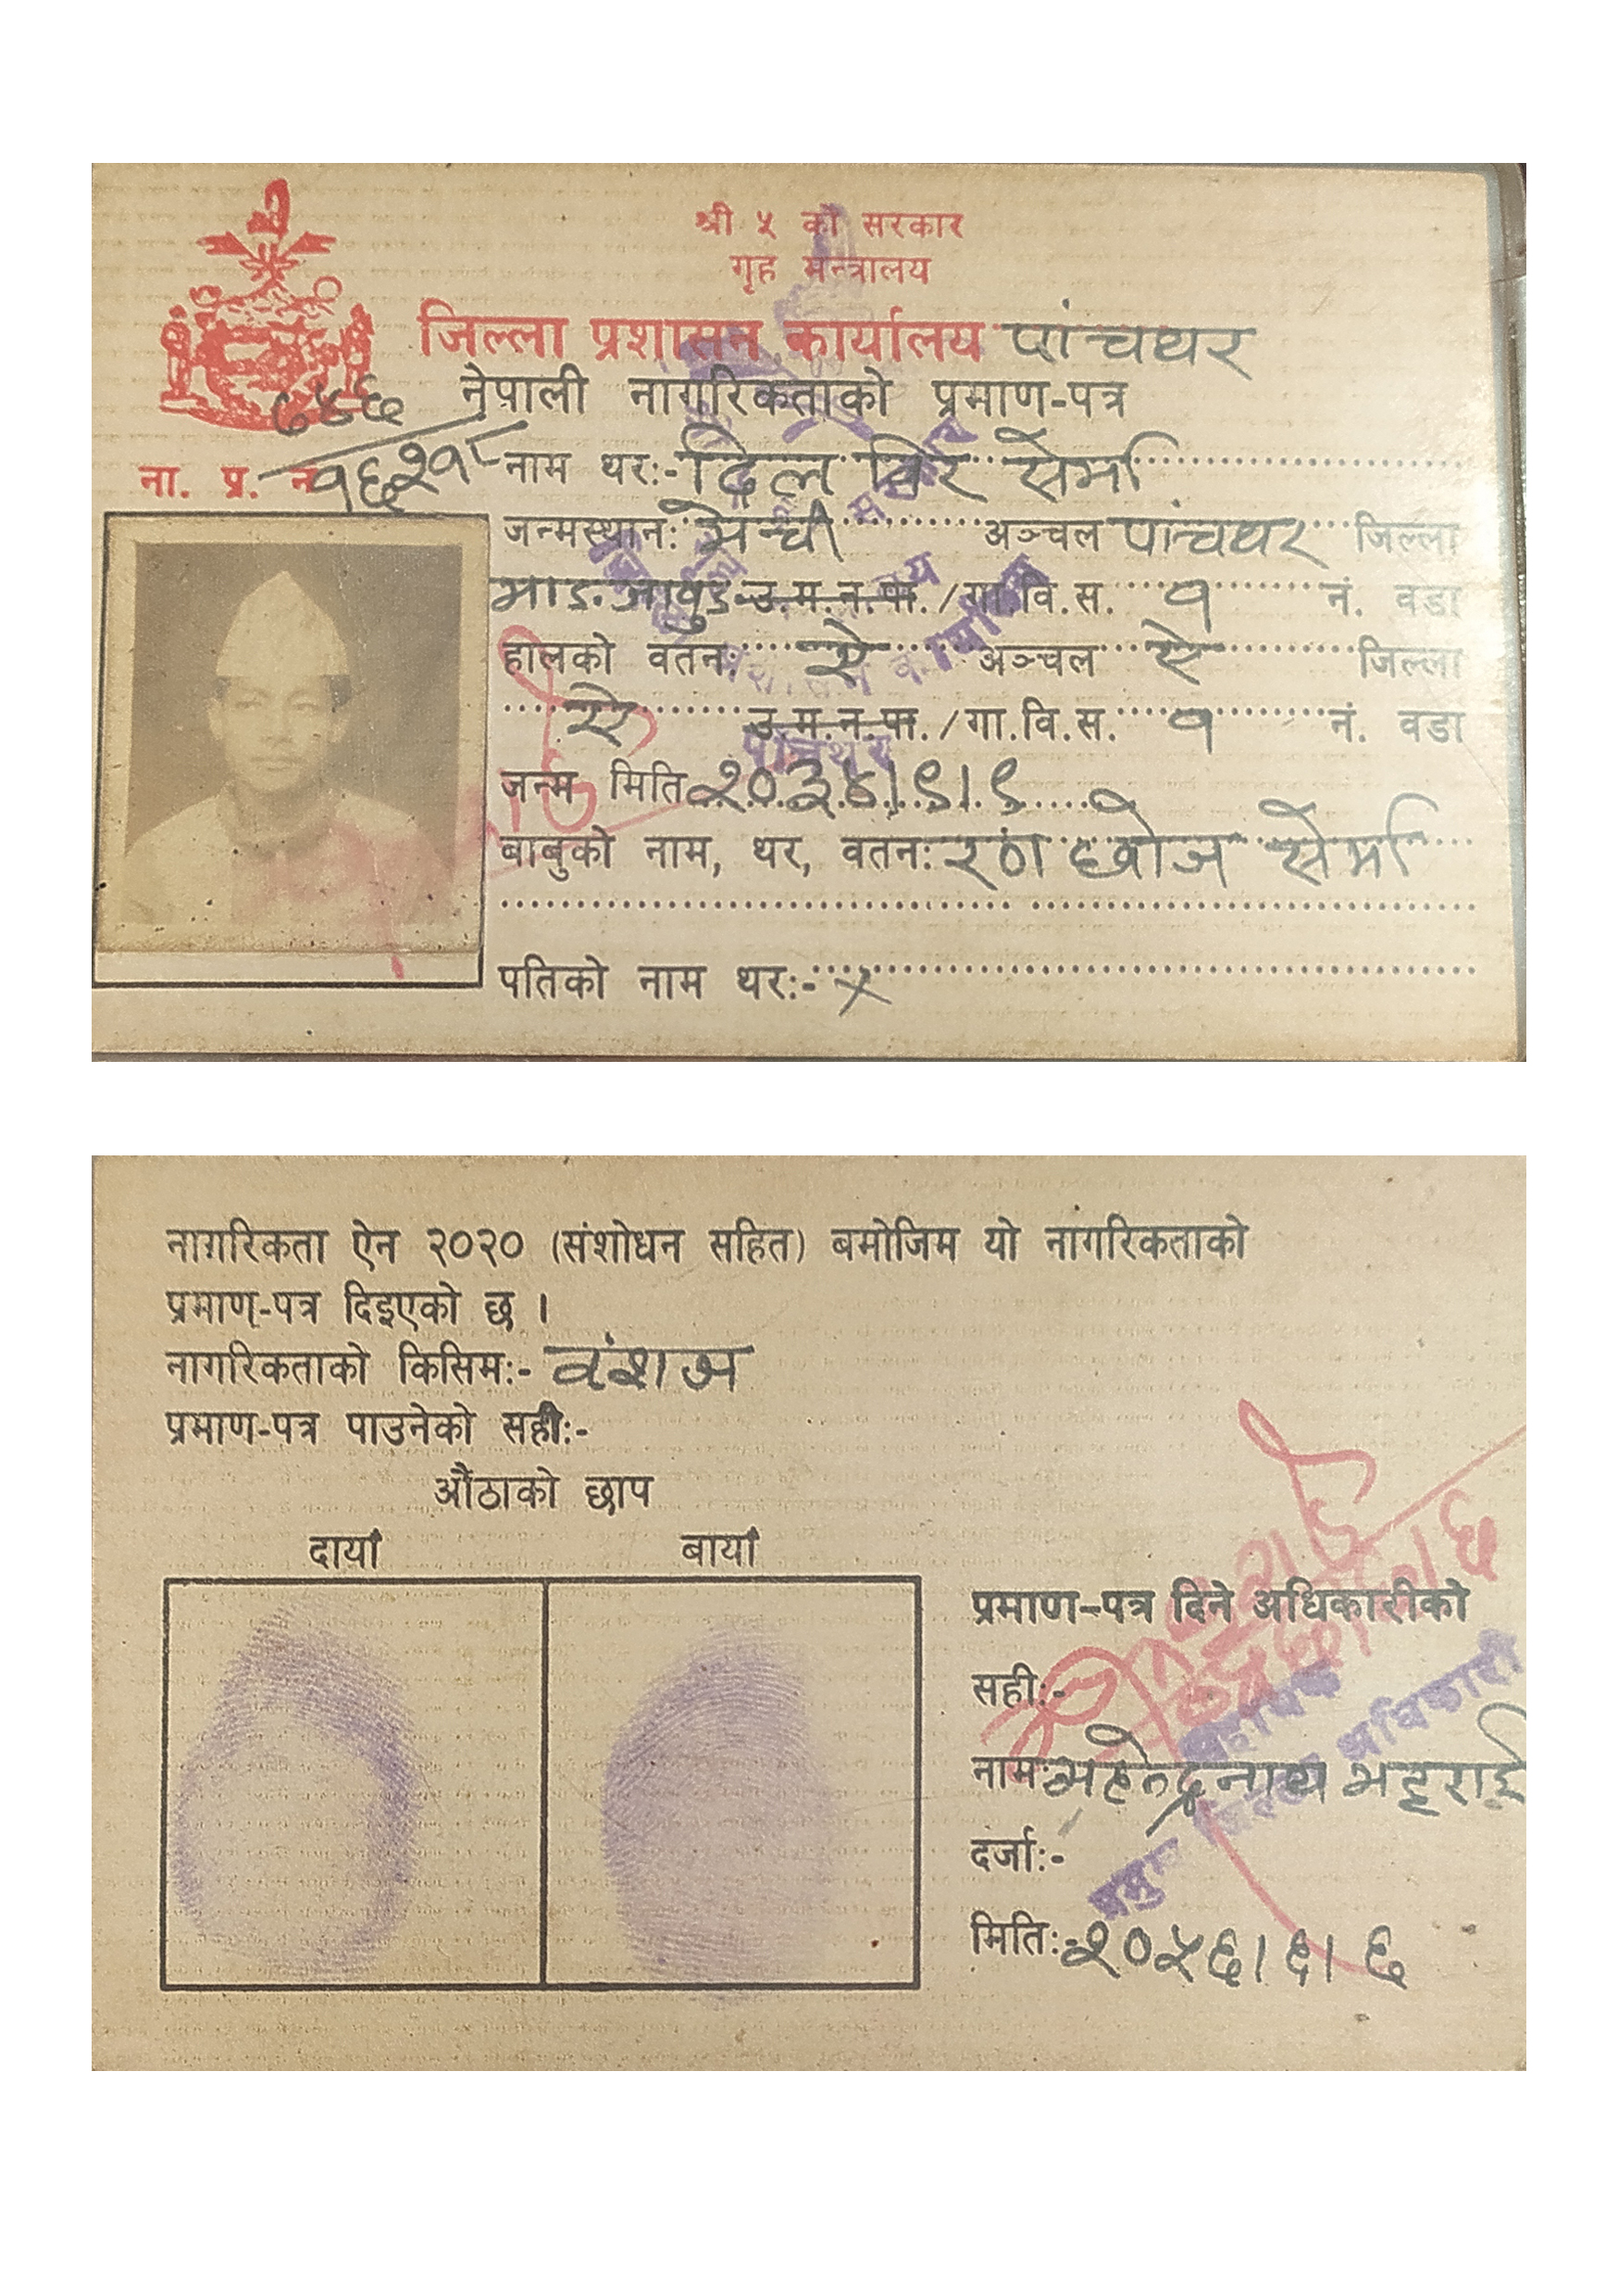 श्री ५ को सरकार
गृह मन्त्रालय
जिल्ला प्रशासन कार्यालय पांचथर
नेपाली नागरिकताको प्रमाण-पत्र
ना. प्र. नं
नाम थर:- दिल विर सेर्मा
जन्मस्थान: मेन्ची अञ्चल पांचथर जिल्ला
उ.म.न.पा./गा.वि.स. १ नं. वडा
हालको वतन: ऐ अञ्चल ऐ जिल्ला
ऐ उ.म.न.पा./गा.वि.स. १ नं. वडा
जन्म मिति २०३४।९।९
बाबुको नाम, थर, वतन: सेर्मा
पतिको नाम थर:- x
नागरिकता ऐन २०२० (संशोधन सहित) बमोजिम यो नागरिकताको
प्रमाण-पत्र दिइएको छ ।
नागरिकताको किसिम:- वंशज
प्रमाण-पत्र पाउनेको सही:-
औंठाको छाप
दायाँ बायाँ
प्रमाण-पत्र दिने अधिकारीको
सही:-
नाम: महेन्द्रनाथ भट्टराई
दर्जा:-
प्रमुख जिल्ला अधिकारी
मिति:- २०५६।६।६